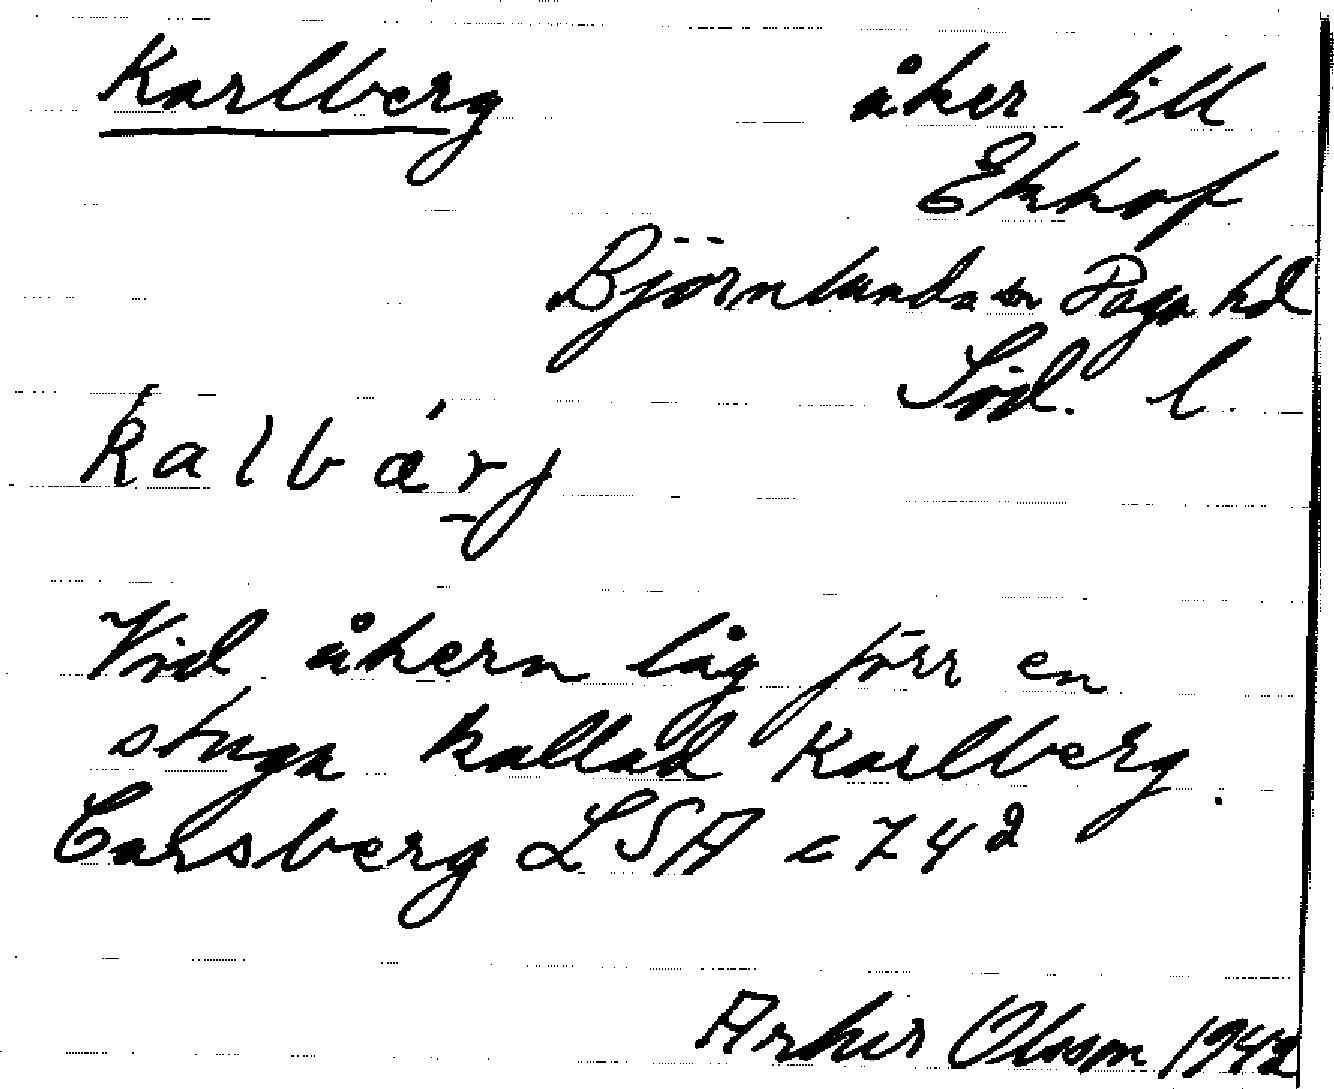 Karlberg åker till
Ekhof
Björnlunda sn Daga hd
Söd. l.
kalbær̠j
Vid åkern låg förr en
stuga kallad Karlberg.
Carsberg LSA c 742
Olsson 1942